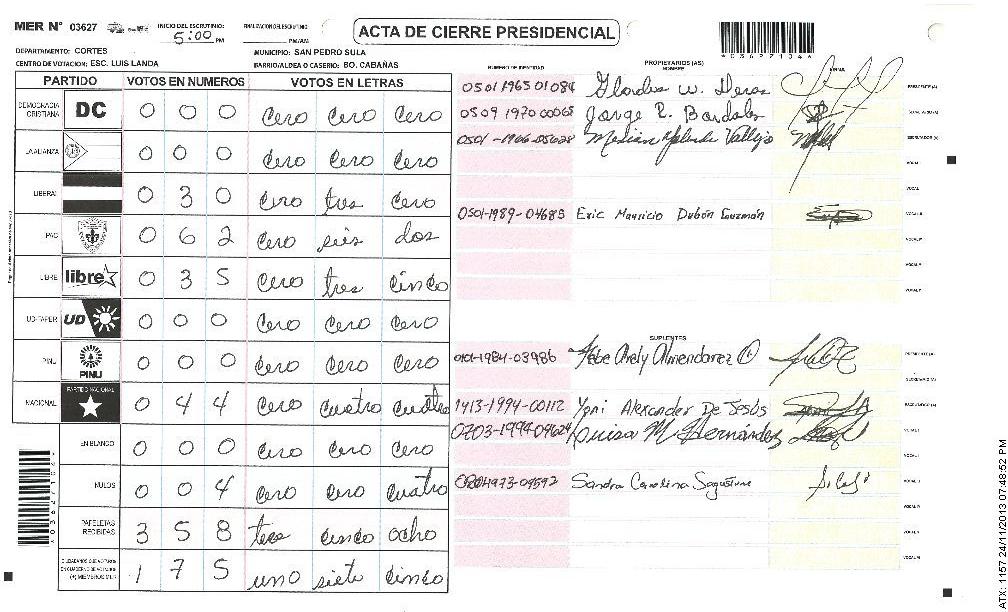 MER N° 03627 INICIO DEL ESCRUTINIO: 5:00 PM FINALIZACION DEL ESCRUTINIO: PM/AM
ACTA DE CIERRE PRESIDENCIAL
DEPARTAMENTO: CORTES MUNICIPIO: SAN PEDRO SULA
CENTRO DE VOTACION: ESC. LUIS LANDA BARRIO/ALDEA O CASERIO: BO. CABAÑAS
PARTIDO VOTOS EN NUMEROS VOTOS EN LETRAS
DEMOCRACIA CRISTIANA DC 0 0 0 Cero Cero Cero
LA ALIANZA 0 0 0 Cero Cero Cero
LIBERAL 0 3 0 Cero tres Cero
PAC 0 6 2 Cero seis dos
LIBRE libre 0 3 5 Cero tres cinco
UD-FAPER UD 0 0 0 Cero Cero Cero
PINU PINU 0 0 0 Cero Cero Cero
NACIONAL PARTIDO NACIONAL 0 4 4 Cero cuatro cuatro
EN BLANCO 0 0 0 Cero Cero Cero
NULOS 0 0 4 Cero Cero cuatro
PAPELETAS RECIBIDAS 3 5 8 tres cinco ocho
CIUDADANOS QUE VOTARON EN CUADERNO DE VOTACION (+) MIEMBROS MER 1 7 5 uno siete cinco
NUMERO DE IDENTIDAD PROPIETARIOS (AS) NOMBRE FIRMA
0501 1965 01084 Gladis W. Deras PRESIDENTE (A)
0509 1970 00068 Jorge L. Bardales
0501-1966-05628 Vallejo SECRETARIO (A)
0501-1989-04685 Eric Mauricio Dubón Guzmán
SUPLENTES
0101-1984-03986 Hebe Arely Almendarez O. PRESIDENTE (A)
SECRETARIO (A)
1413-1994-00112 Yoni Alexander De Jesús
0703-1994-04624 Luisa M. Hernández
Sandra Carolina Sagastume
ATX: 1157 24/11/2013 07:48:52 PM